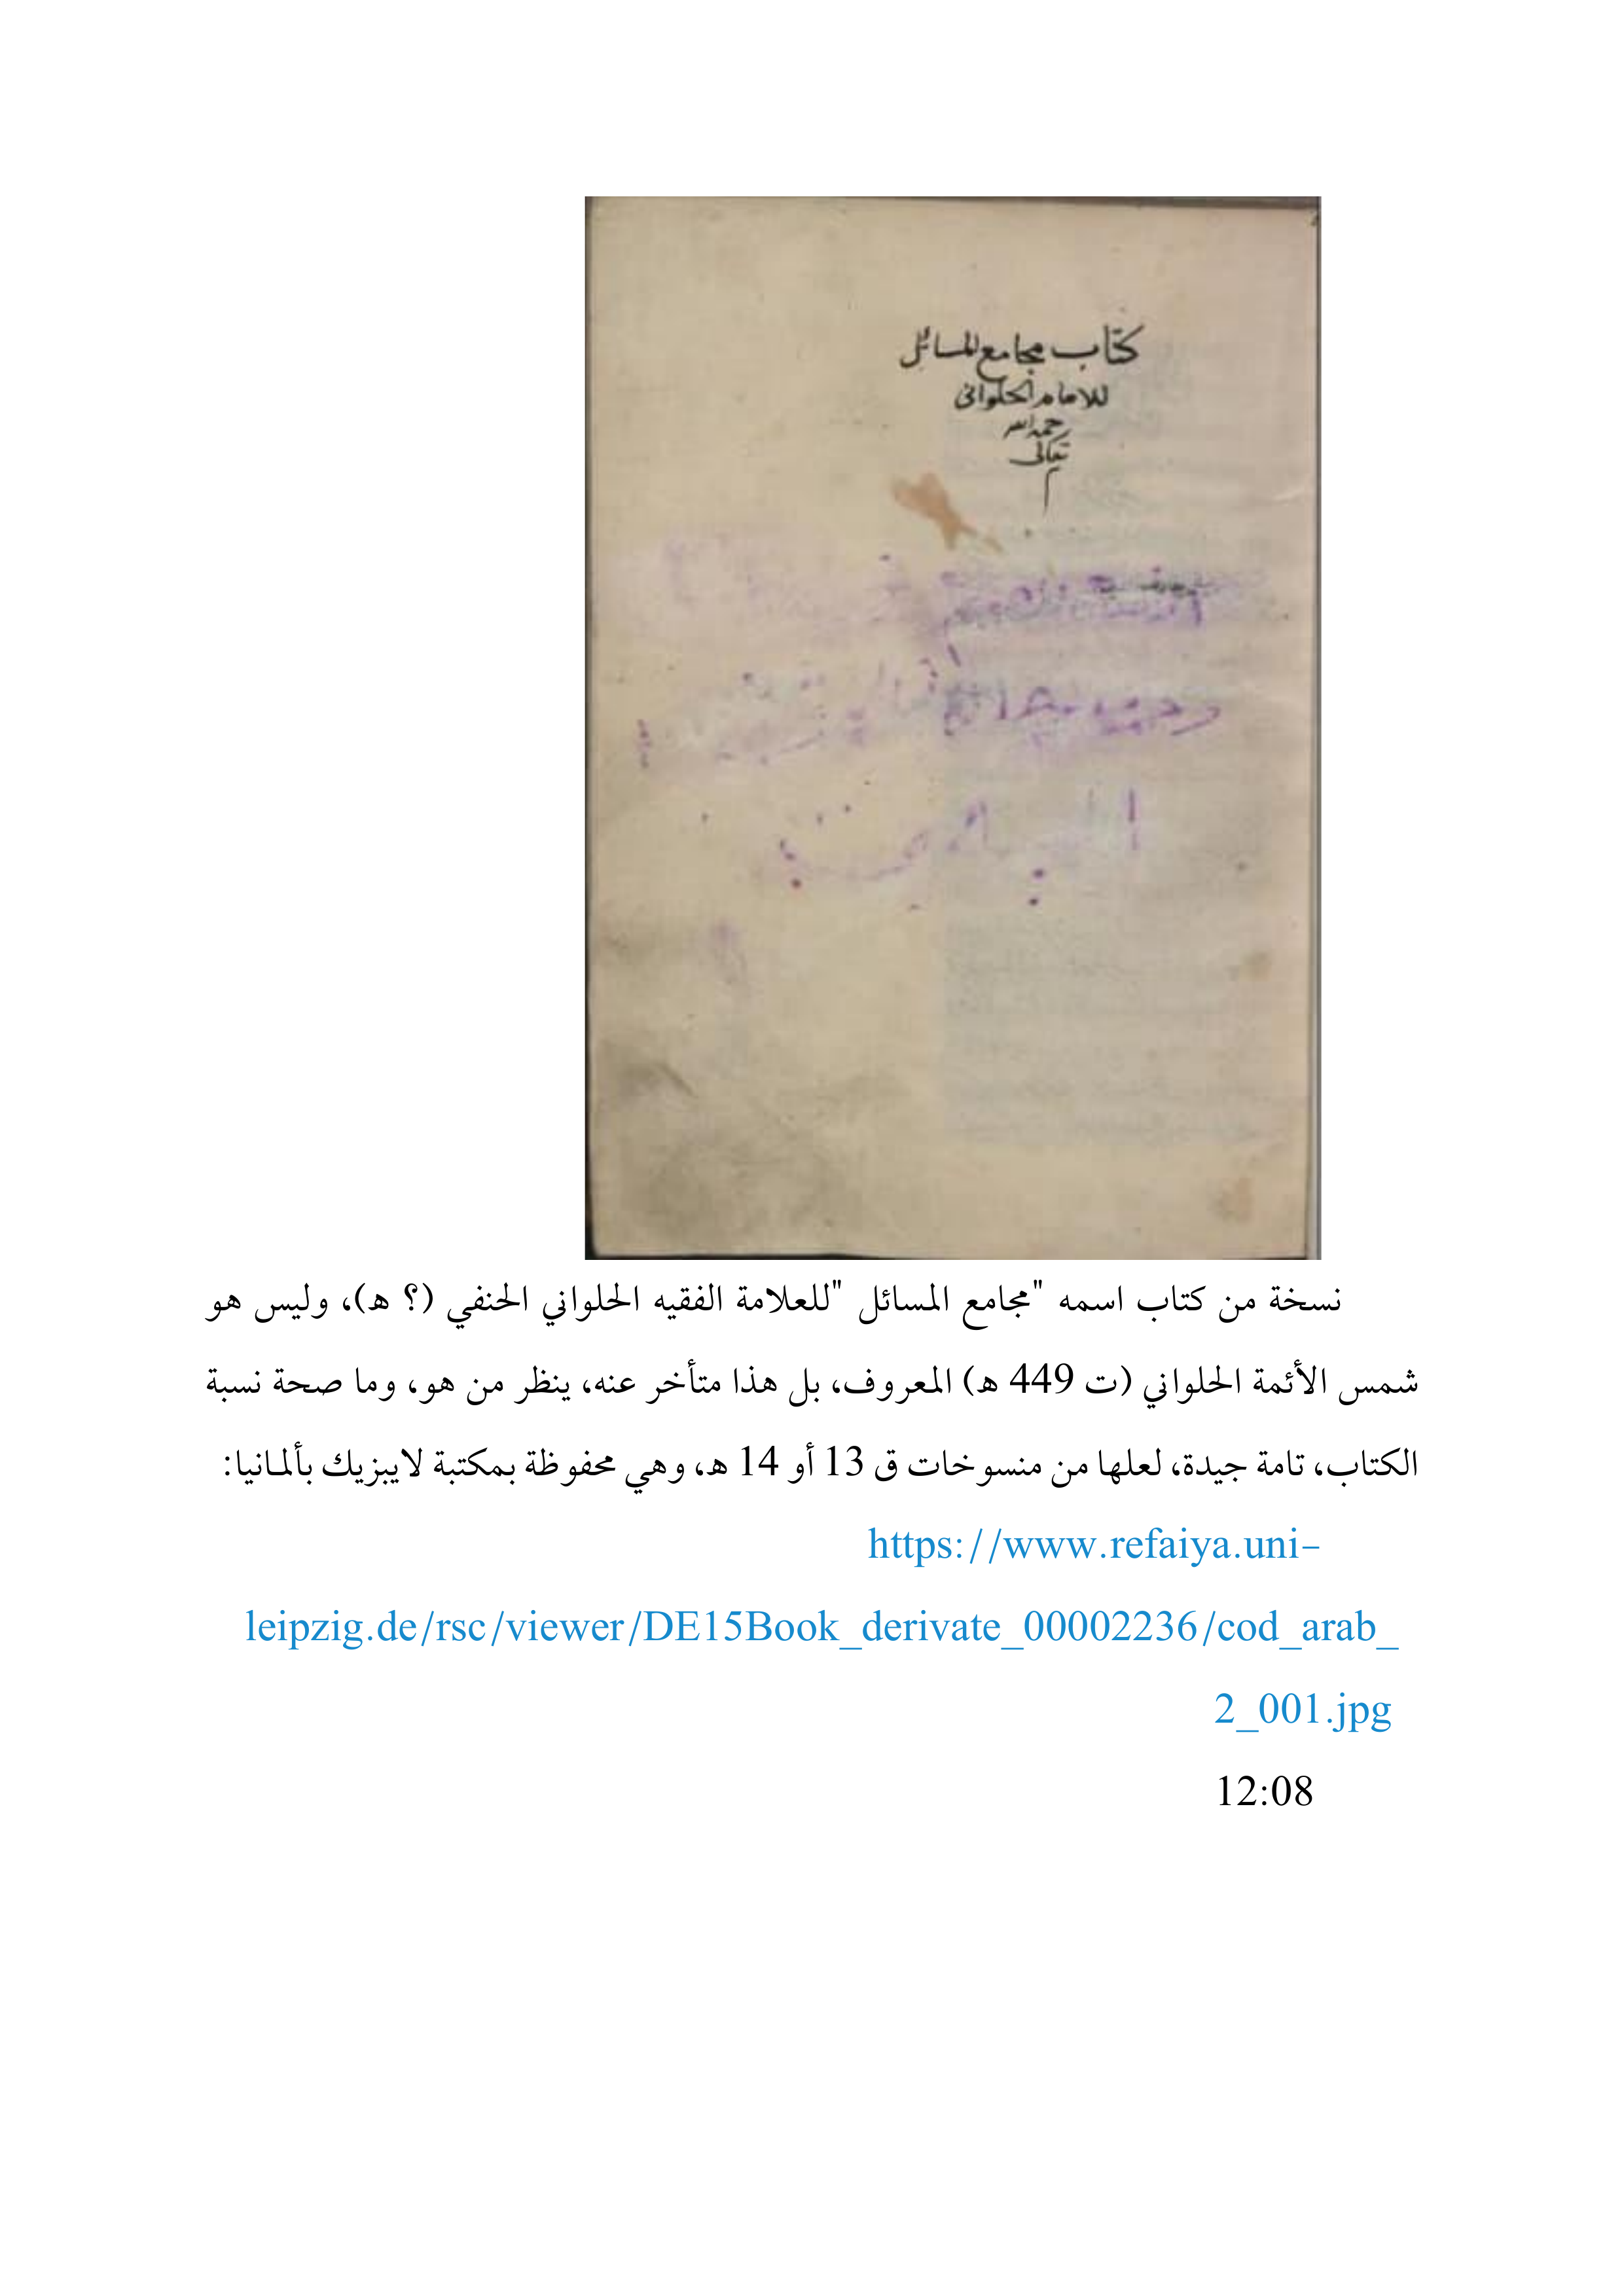 كتاب مجامع المسائل
للامام الحلوانى
رحمه الله
تعالى
نسخة من كتاب اسمه "مجامع المسائل "للعلامة الفقيه الحلواني الحنفي (؟ ه)، وليس هو
شمس الأئمة الحلواني (ت 449 ه) المعروف، بل هذا متأخر عنه، ينظر من هو، وما صحة نسبة
الكتاب، تامة جيدة، لعلها من منسوخات ق 13 أو 14 ه، وهي محفوظة بمكتبة لايبزيك بألمانيا:
https://www.refaiya.uni-
leipzig.de/rsc/viewer/DE15Book_derivate_00002236/cod_arab_
2_001.jpg
12:08